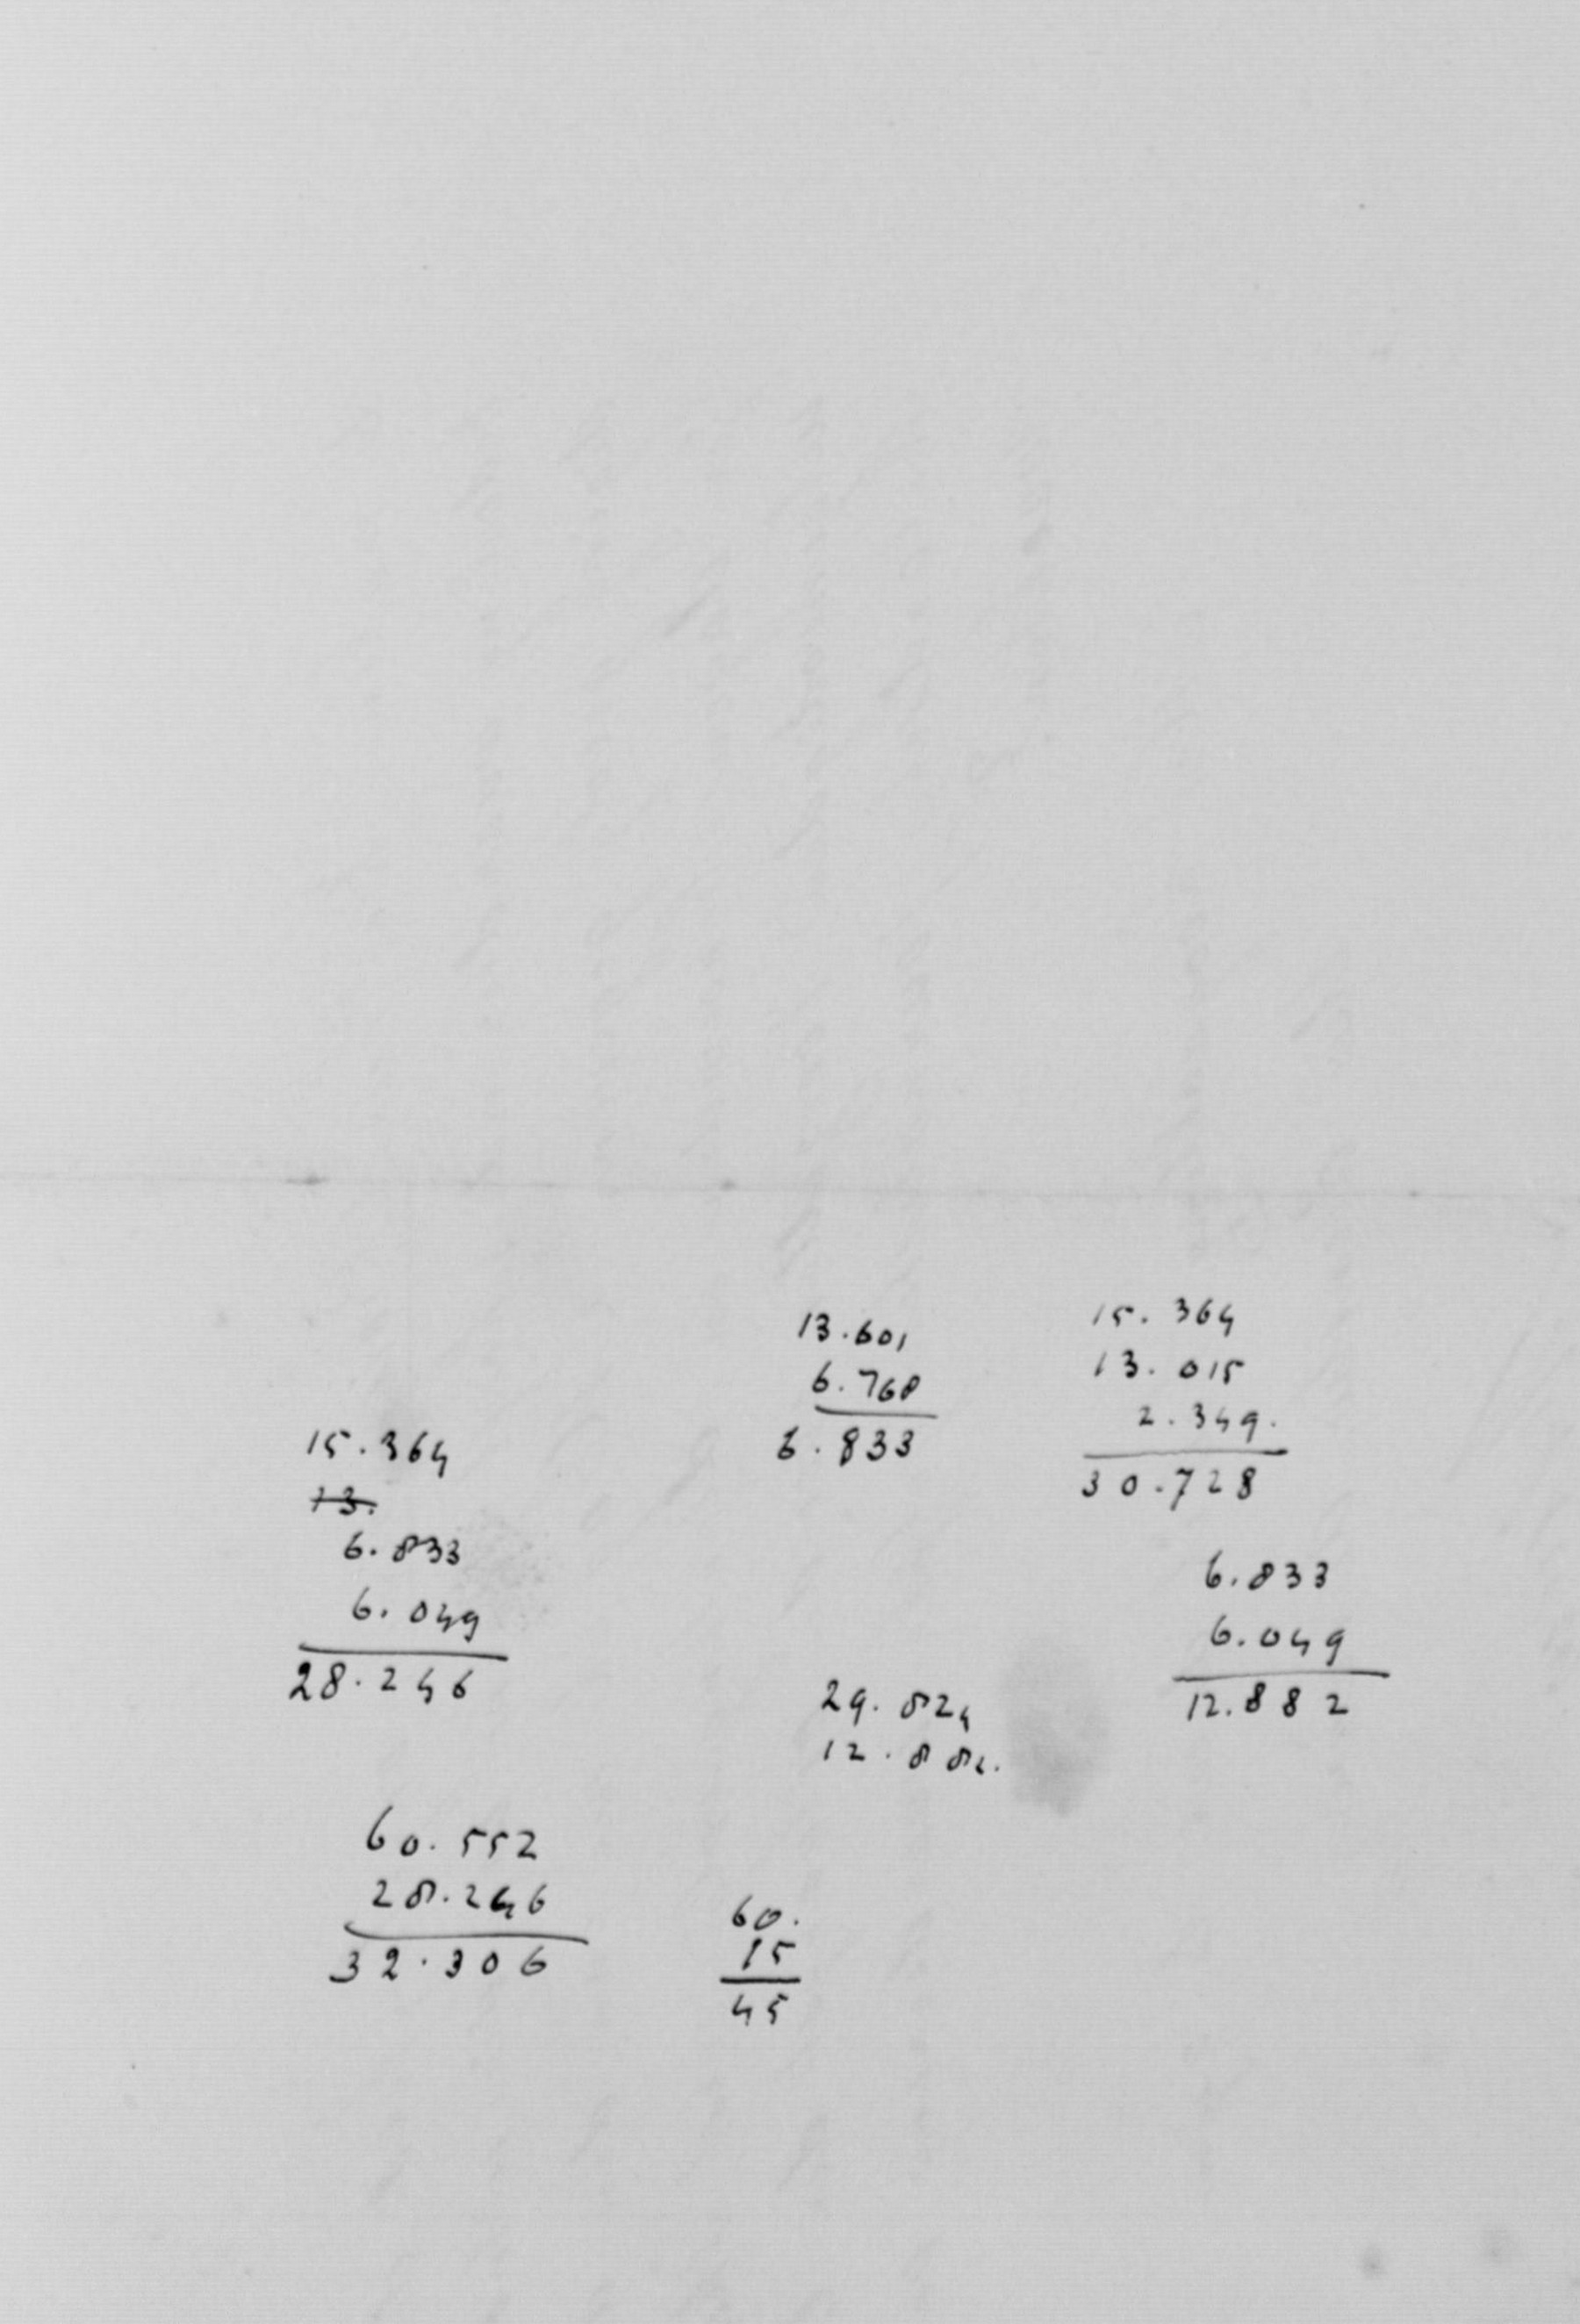 13.601
6.768
6.833
15.364
13.015
2.349.
30.728
15.364
13.
6.833
6.049
28.246
6.833
6.049
12.882
29.824
12.882.
60.552
28.246
32.306
60.
15
45